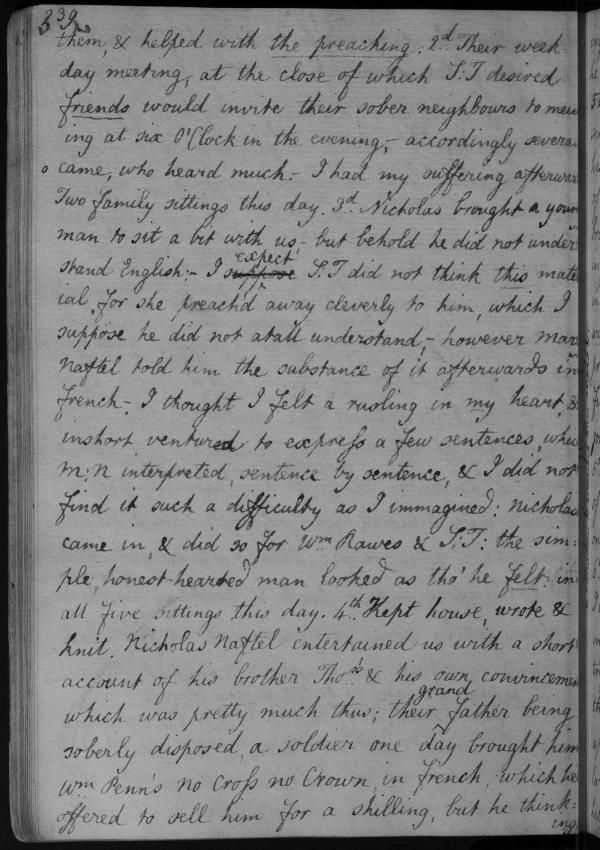 339
them, & helped with the preaching. 2d Their week-
day meeting, at the close of which S:T desired
friends would invite their sober neighbours to meet
ing at six O'Clock in the evening,- accordingly several
came, who heard much:- I had my suffering afterwards
Two family sittings this day. 3d Nicholas brought a young
man to sit a bit with us,- but behold he did not under
expect
stand English:- I suppose S:T did not think this mater
ial, for she preach'd away cleverly to him, which I
suppose he did not atall understand,- however Mary
Naftel told him the substance of it afterwards in
french- I thought I felt a rusling in my heart, &
inshort ventured to express a few sentences, which
M:N interpreted, sentence by sentence, & I did not
find it such a difficulty as I immagined: Nicholas
came in, & did so for Wm Rawes & S:T: the sim=
ple, honest-hearted man looked as tho' he felt: in
all five sittings this day. 4th Kept house, wrote &
knit. Nicholas Naftel entertained us with a short
account of his brother Thos & his own convincement
grand
which was pretty much thus; their father being
soberly disposed, a soldier one day brought him
Wm Penn's no Cross no Crown, in french, which he
offered to sell him for a shilling, but he think=
ing